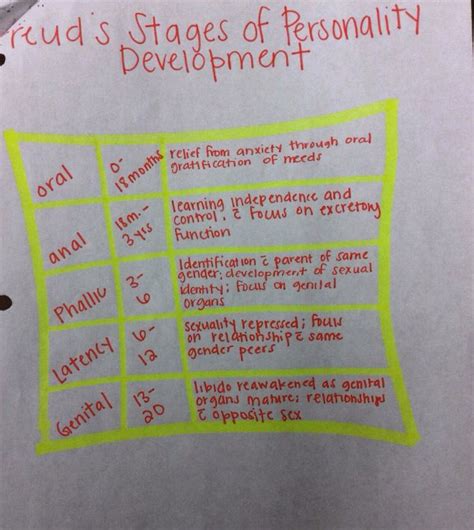 reud's Stages of Personality
Development
oral
0-
18 months
relief from anxiety through oral
gratification of needs
anal
18m.-
3yrs
learning independence and
control, c̄ focus on excretory
function
Phallic
3-
6
Identification c̄ parent of same
gender; development of sexual
identity; focus on genital
organs
Latency
6-
12
sexuality repressed; focus
on relationship c̄ same
gender peers
Genital
13-
20
libido reawakened as genital
organs mature; relationships
c̄ opposite sex